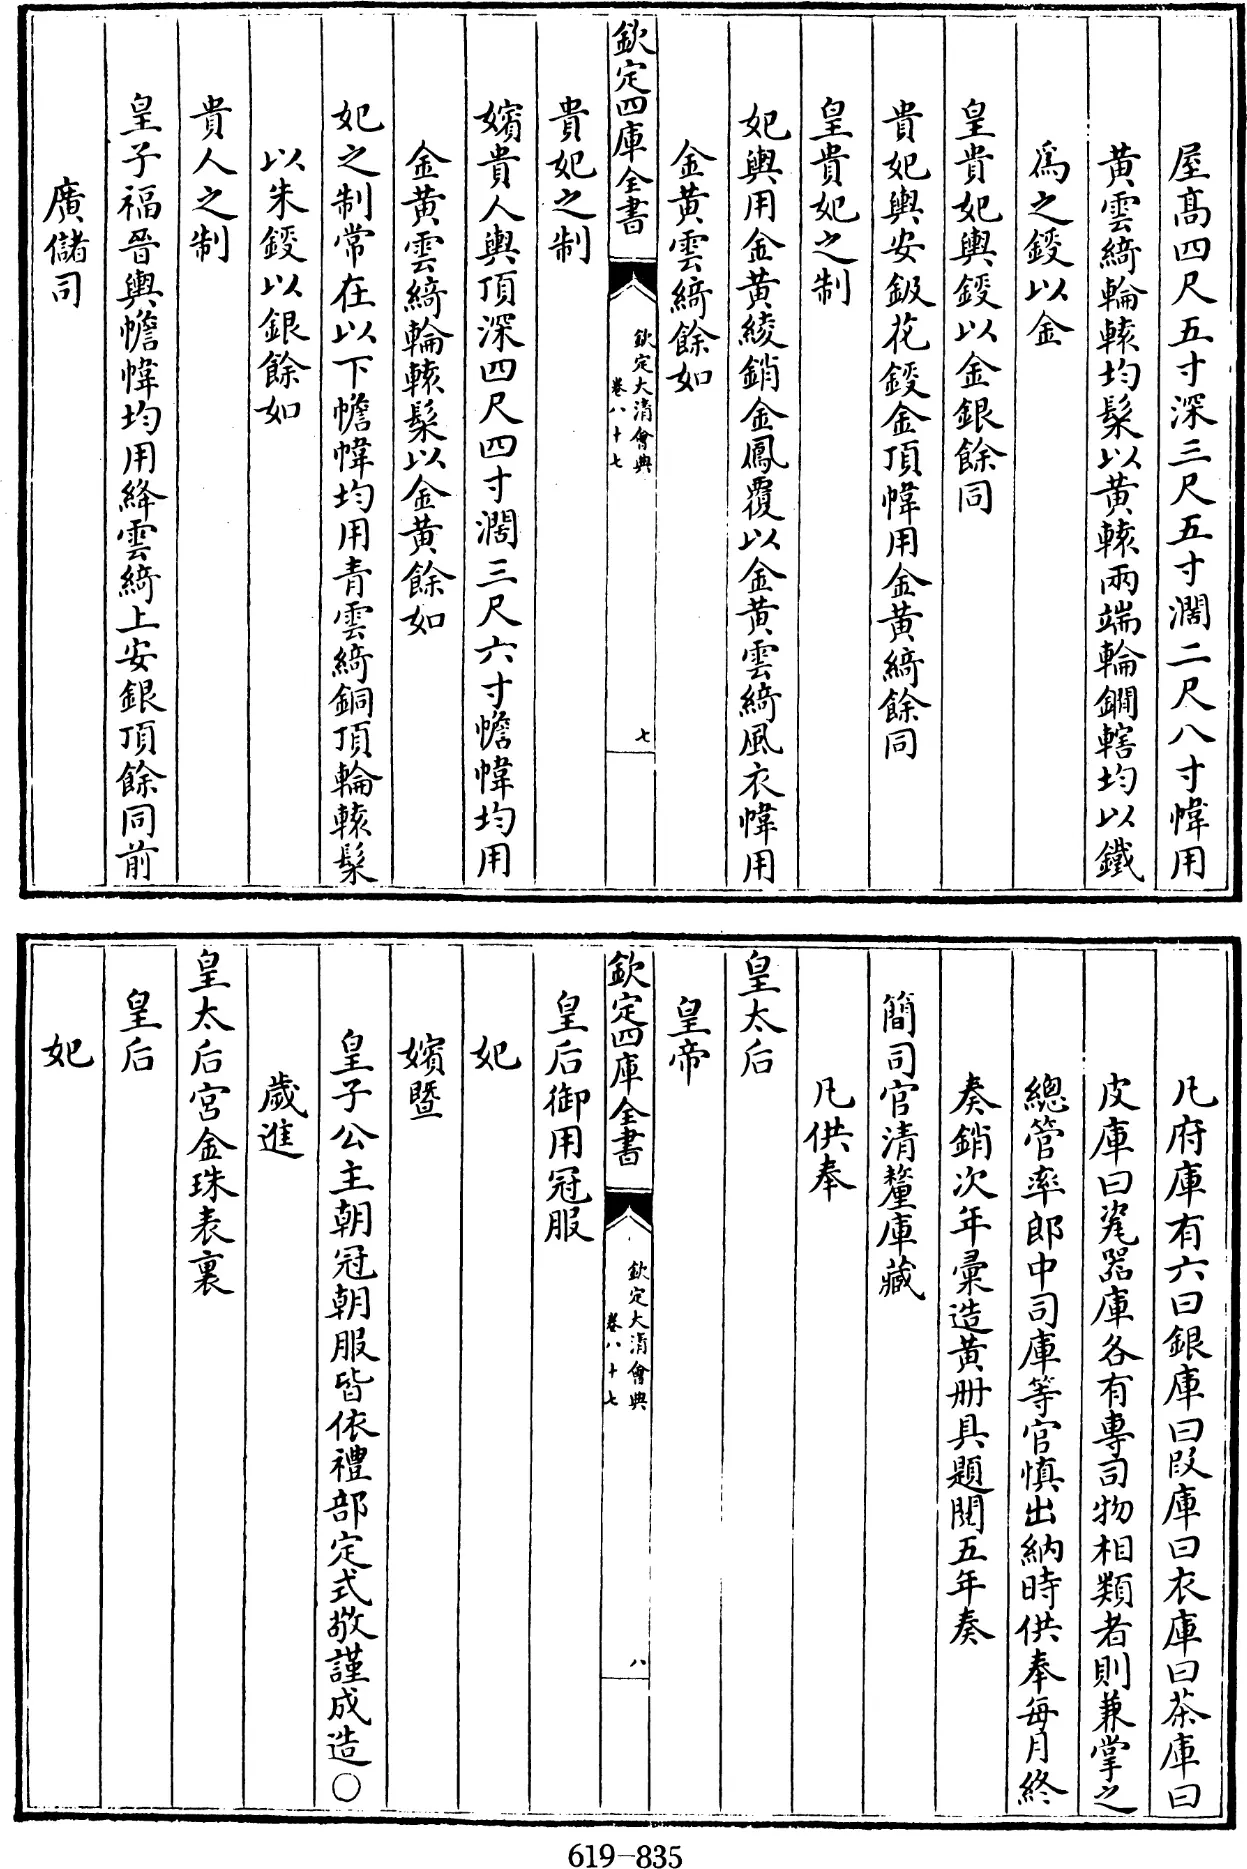 屋髙四尺五寸深三尺五寸濶二尺八寸幃用
黃雲緞輪轅均髹以黃轅兩端輪鐧轄均以鐵
爲之鋄以金
皇貴妃輿鋄以金銀餘同
貴妃輿安鈒花鋄金頂幃用金黃緞餘同
皇貴妃之制
妃輿用金黃綾銷金鳳覆以金黃雲緞風衣幃用
金黃雲緞餘如
欽定四庫全書
欽定大清會典
卷八十七
七
貴妃之制
嬪貴人輿頂深四尺四寸濶三尺六寸幨幃均用
金黃雲緞輪轅髹以金黃餘如
妃之制常在以下幨幃均用青雲緞銅頂輪轅髹
以朱鋄以銀餘如
貴人之制
皇子福晉輿幨幃均用絳雲緞上安銀頂餘同前
廣儲司
凡府庫有六曰銀庫曰段庫曰衣庫曰茶庫曰
皮庫曰瓷器庫各有專司物相類者則兼掌之
總管率郎中司庫等官慎出納時供奉每月終
奏銷次年彙造黃冊具題閱五年奏
簡司官清釐庫藏
凡供奉
皇太后
皇帝
欽定四庫全書
欽定大清會典
卷八十七
八
皇后御用冠服
妃
嬪暨
皇子公主朝冠朝服皆依禮部定式敬謹成造○
歲進
皇太后宮金珠表裏
皇后
妃
619-835